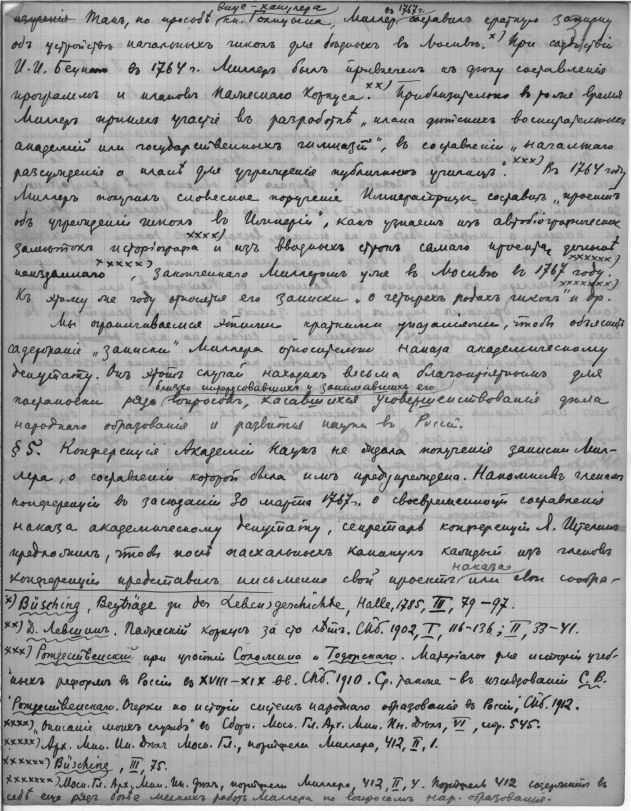 вице-канцлера в 1767 г.
Так, по просьбе кн. Голицына, Миллер составил краткую записку
об устройстве начальных школ для бедных в Москве.x) При содействии
И.И. Бецкаго в 1764 г. Миллер был привлечен к делу составления
программ и планов Пажескаго Корпуса.xx) Приблизительно в то же время
Миллер принял участие в разработке „плана детских воспитательных
академий или государственных гимназий“, в составлении „начальнаго
разсуждения о плане для учреждения публичных училищ“.xxx) В 1764 году
Миллер получил словесное поручение Императрицы составить „проект
об учреждении школ в Империи“, как узнаем из автобиографических
заметок историографа xxxx) и из вводных строк самаго проекта,
неизданнаго xxxxx), законченнаго Миллером уже в Москве в 1767 году. xxxxxx)
К этому же году относятся его записки „о четырех родах школ“ и др. xxxxxxx)
Мы ограничиваемся этими краткими указаниями, чтобы объяснить
содержание „записки“ Миллера относительно наказа академическому
депутату. Он этот случай находил весьма благоприятным для
близко интересовавших и занимавших его
постановки ряда вопросов, касавшихся усовершенствования дела
народнаго образования и развития науки в России.
§ 5. Конференция Академии Наук не ждала получения записки Мил-
лера, о составлении которой была им предупреждена. Напомнив членам
конференции в заседании 30 марта 1767 г. о своевременности составления
наказа академическому депутату, секретарь конференции Я. Штелин
предложил, чтобы после пасхальных каникул каждый из членов
наказа
конференции представил письменно свой проект или свои сообра-
x) Büsching, Beyträge zu der Lebensgeschichte, Halle, 1785, III, 79–97.
xx) Д. Левшин. Пажеский корпус за сто лет. Спб. 1902, I, 116–136; II, 33–41.
xxx) Рождественский при участии Соломина и Тодорскаго. Материалы для истории учеб-
ных реформ в России в XVIII–XIX вв. Спб. 1910. Ср. также – в изследовании С. В.
Рождественскаго. Очерки по истории систем народнаго образования в России, Спб. 1912.
xxxx) „Описание моих служб“ в Сборн. Моск. Гл. Арх. Мин. Ин. Дел, VI, стр. 545.
xxxxx) Арх. Мин. Ин. Дел Моск. Гл., портфели Миллера, 412, II, 1.
xxxxxx) Büsching, III, 75.
xxxxxxx) Моск. Гл. Арх. Мин. Ин. Дел, портфели Миллера, 412, II, 4. Портфель 412 содержит в
себе еще ряд более мелких работ Миллера по вопросам нар. образования.